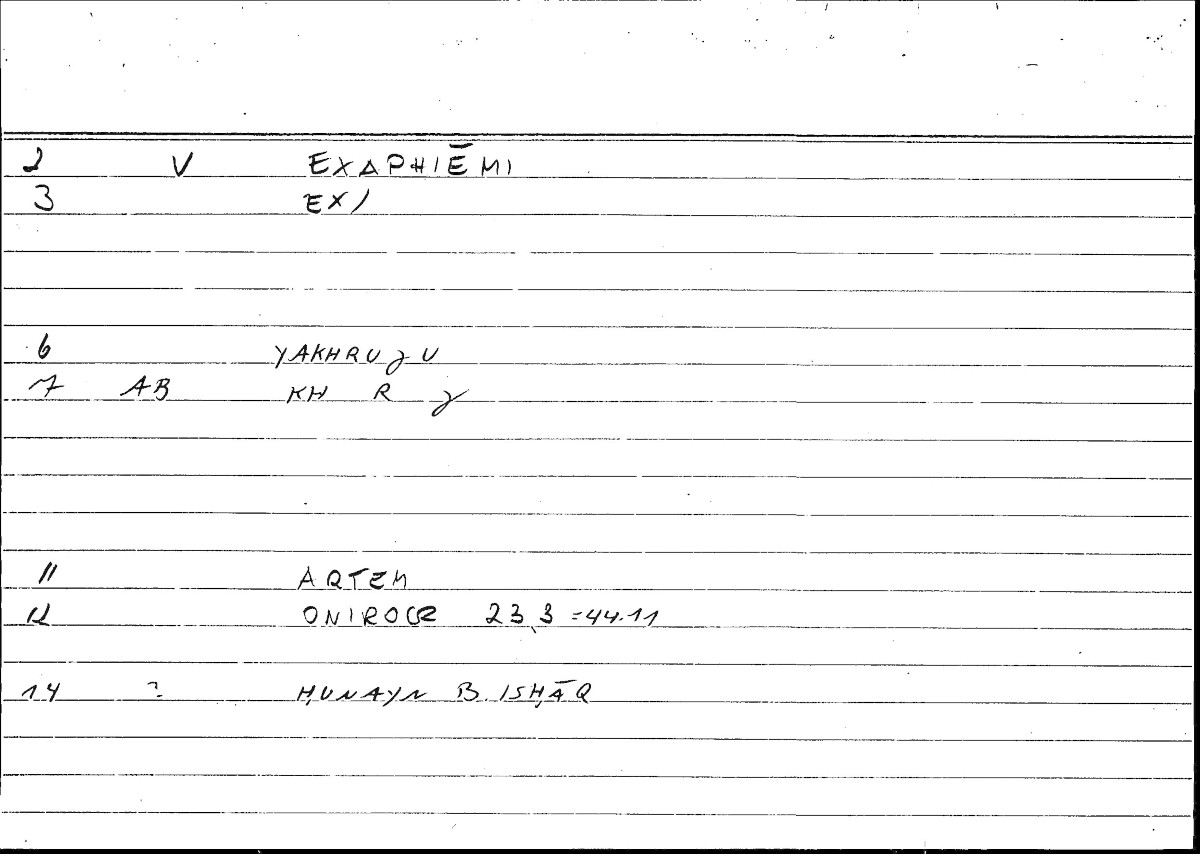 2 V EXAPHIĒMI
3 EX)
6 YAKHRUǧU
7 AB KH R ǧ
11 ARTEM
12 ONIROCR 23,3 = 44.11
14 ? ḤUNAYN B. ISḤĀQ